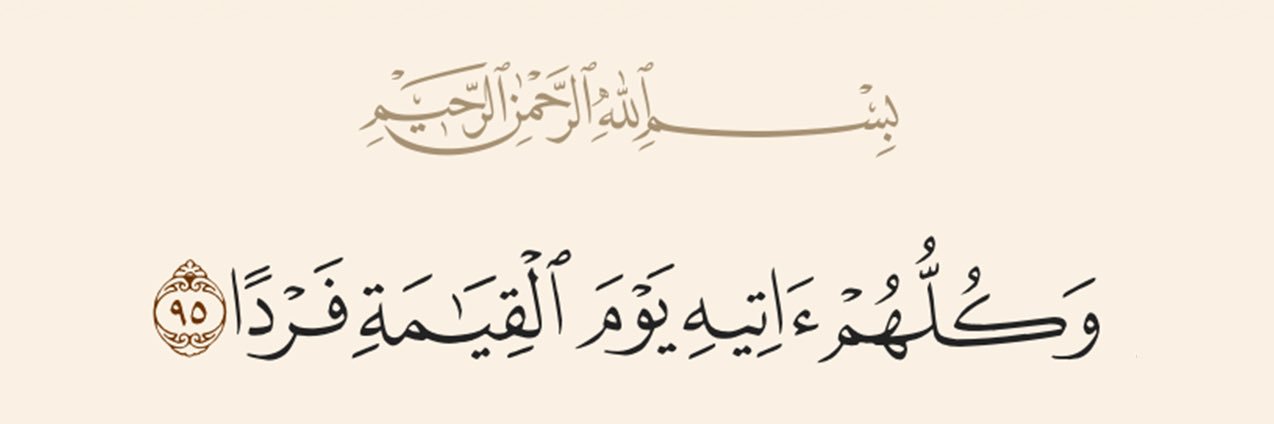 بِسْمِ ٱللَّهِ ٱلرَّحْمَٰنِ ٱلرَّحِيمِ
وَكُلُّهُمْ ءَاتِيهِ يَوْمَ ٱلْقِيَٰمَةِ فَرْدًا ٩٥